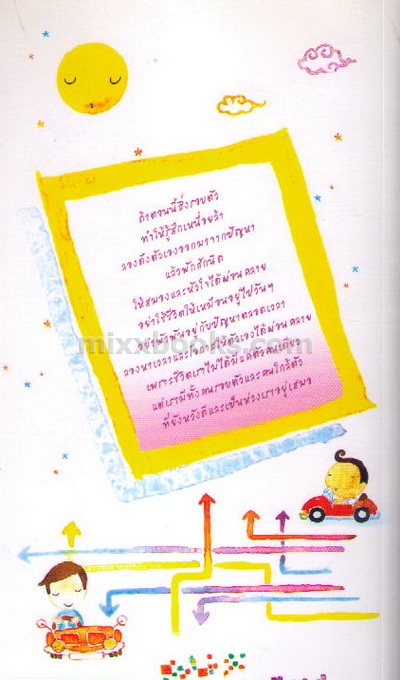 ถ้าตอนนี้สิ่งรอบตัว
ทำให้รู้สึกเหนื่อยล้า
ลองดึงตัวเองออกมาจากปัญหา
แล้วพักสักนิด
ให้สมองและหัวใจได้ผ่อนคลาย
อย่าใช้ชีวิตให้เหมือนอยู่ไปวันๆ
อยู่กับปัญหาตลอดเวลา
ลองหาเวลาและโอกาสให้ตัวเองได้ผ่อนคลาย
เพราะชีวิตเราไม่ได้มีแค่ตัวคนเดียว
แต่เรามีทั้งคนรอบตัวและคนใกล้ตัว
ที่ยังหวังดีและเป็นห่วงเราอยู่เสมอ
mixxbooks.com